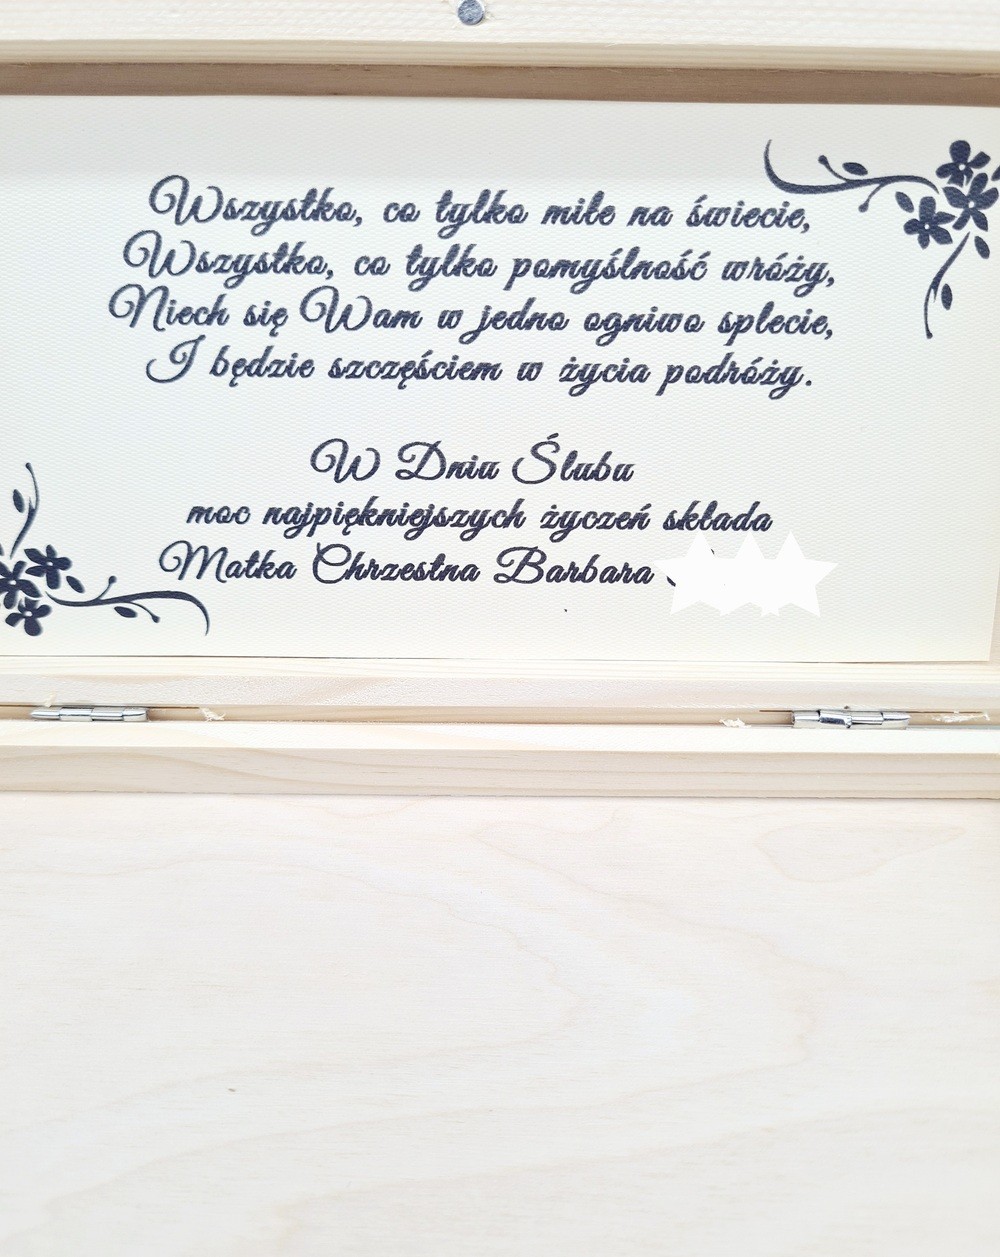 Wszystko, co tylko miłe na świecie,
Wszystko, co tylko pomyślność wróży,
Niech się Wam w jedno ogniwo splecie,
I będzie szczęściem w życia podróży.
W Dniu Ślubu
moc najpiękniejszych życzeń składa
Matka Chrzestna Barbara